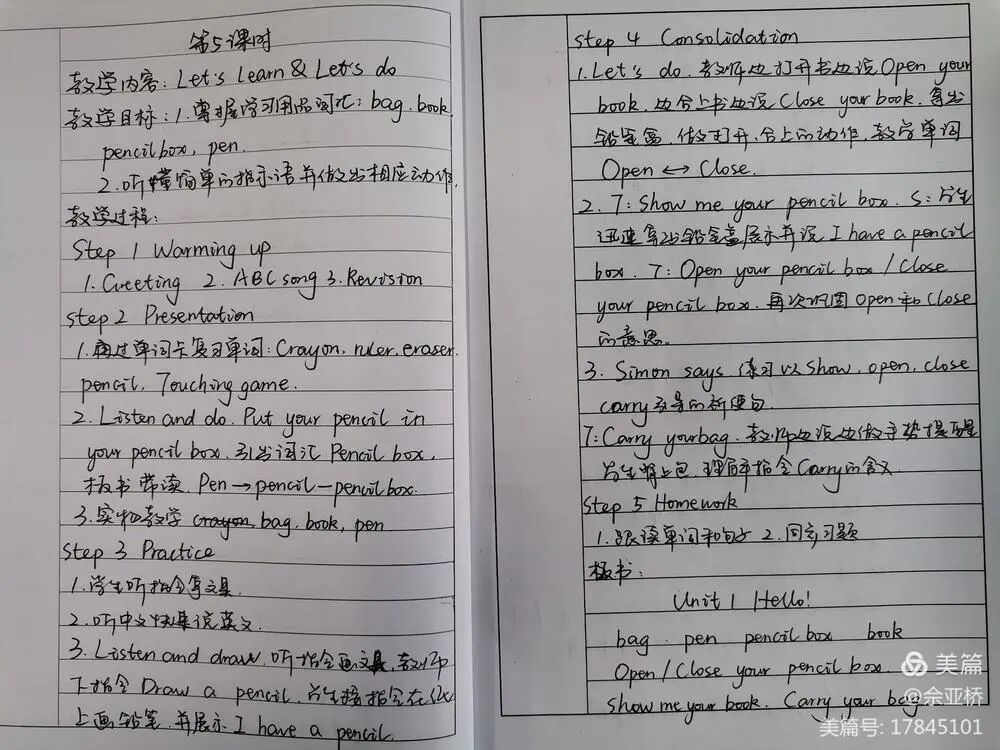 第5课时
教学内容: Let's learn & Let's do
教学目标: 1. 掌握学习用品词汇: bag. book,
pencilbox, pen.
2. 听懂简单的指示语并做出相应动作.
教学过程:
Step 1 Warming up
1. Greeting 2. ABC song 3. Revision
Step 2 Presentation
1. 通过单词卡复习单词: Crayon, ruler, eraser.
pencil. Touching game.
2. Listen and do. Put your pencil in
your pencil box. 引出词汇 Pencil box,
板书 带读. Pen → pencil — pencil box.
3. 实物教学 crayon, bag, book, pen
Step 3 Practice
1. 学生听指令拿文具.
2. 听中文快速说英文.
3. Listen and draw. 听指令画文具, 教师
下指令 Draw a pencil. 学生按指令在
上画铅笔. 并展示 I have a pencil.
Step 4 Consolidation
1. Let's do. 教师边打开书边说 Open your
book. 边合上书边说 Close your book. 拿出
铅笔盒, 做打开、合上的动作, 教学单词
Open ↔ Close.
2. T: Show me your pencil box. S: 学生
迅速拿出铅笔盒展示并说 I have a pencil
box. T: Open your pencil box / Close
your pencil box. 再次巩固 Open 和 Close
的意思.
3. Simon says. 练习以 Show, open, close
carry 引导的祈使句.
T: Carry your bag. 教师边说边做手势提醒
学生背上包. 理解本指令 Carry 的含义.
Step 5 Homework
1. 跟读单词和句子 2. 同步习题
板书:
Unit 1 Hello!
bag pen pencil box book
Open / Close your pencil box
Show me your book. Carry your bag
美篇
@佘亚桥
美篇号: 17845101